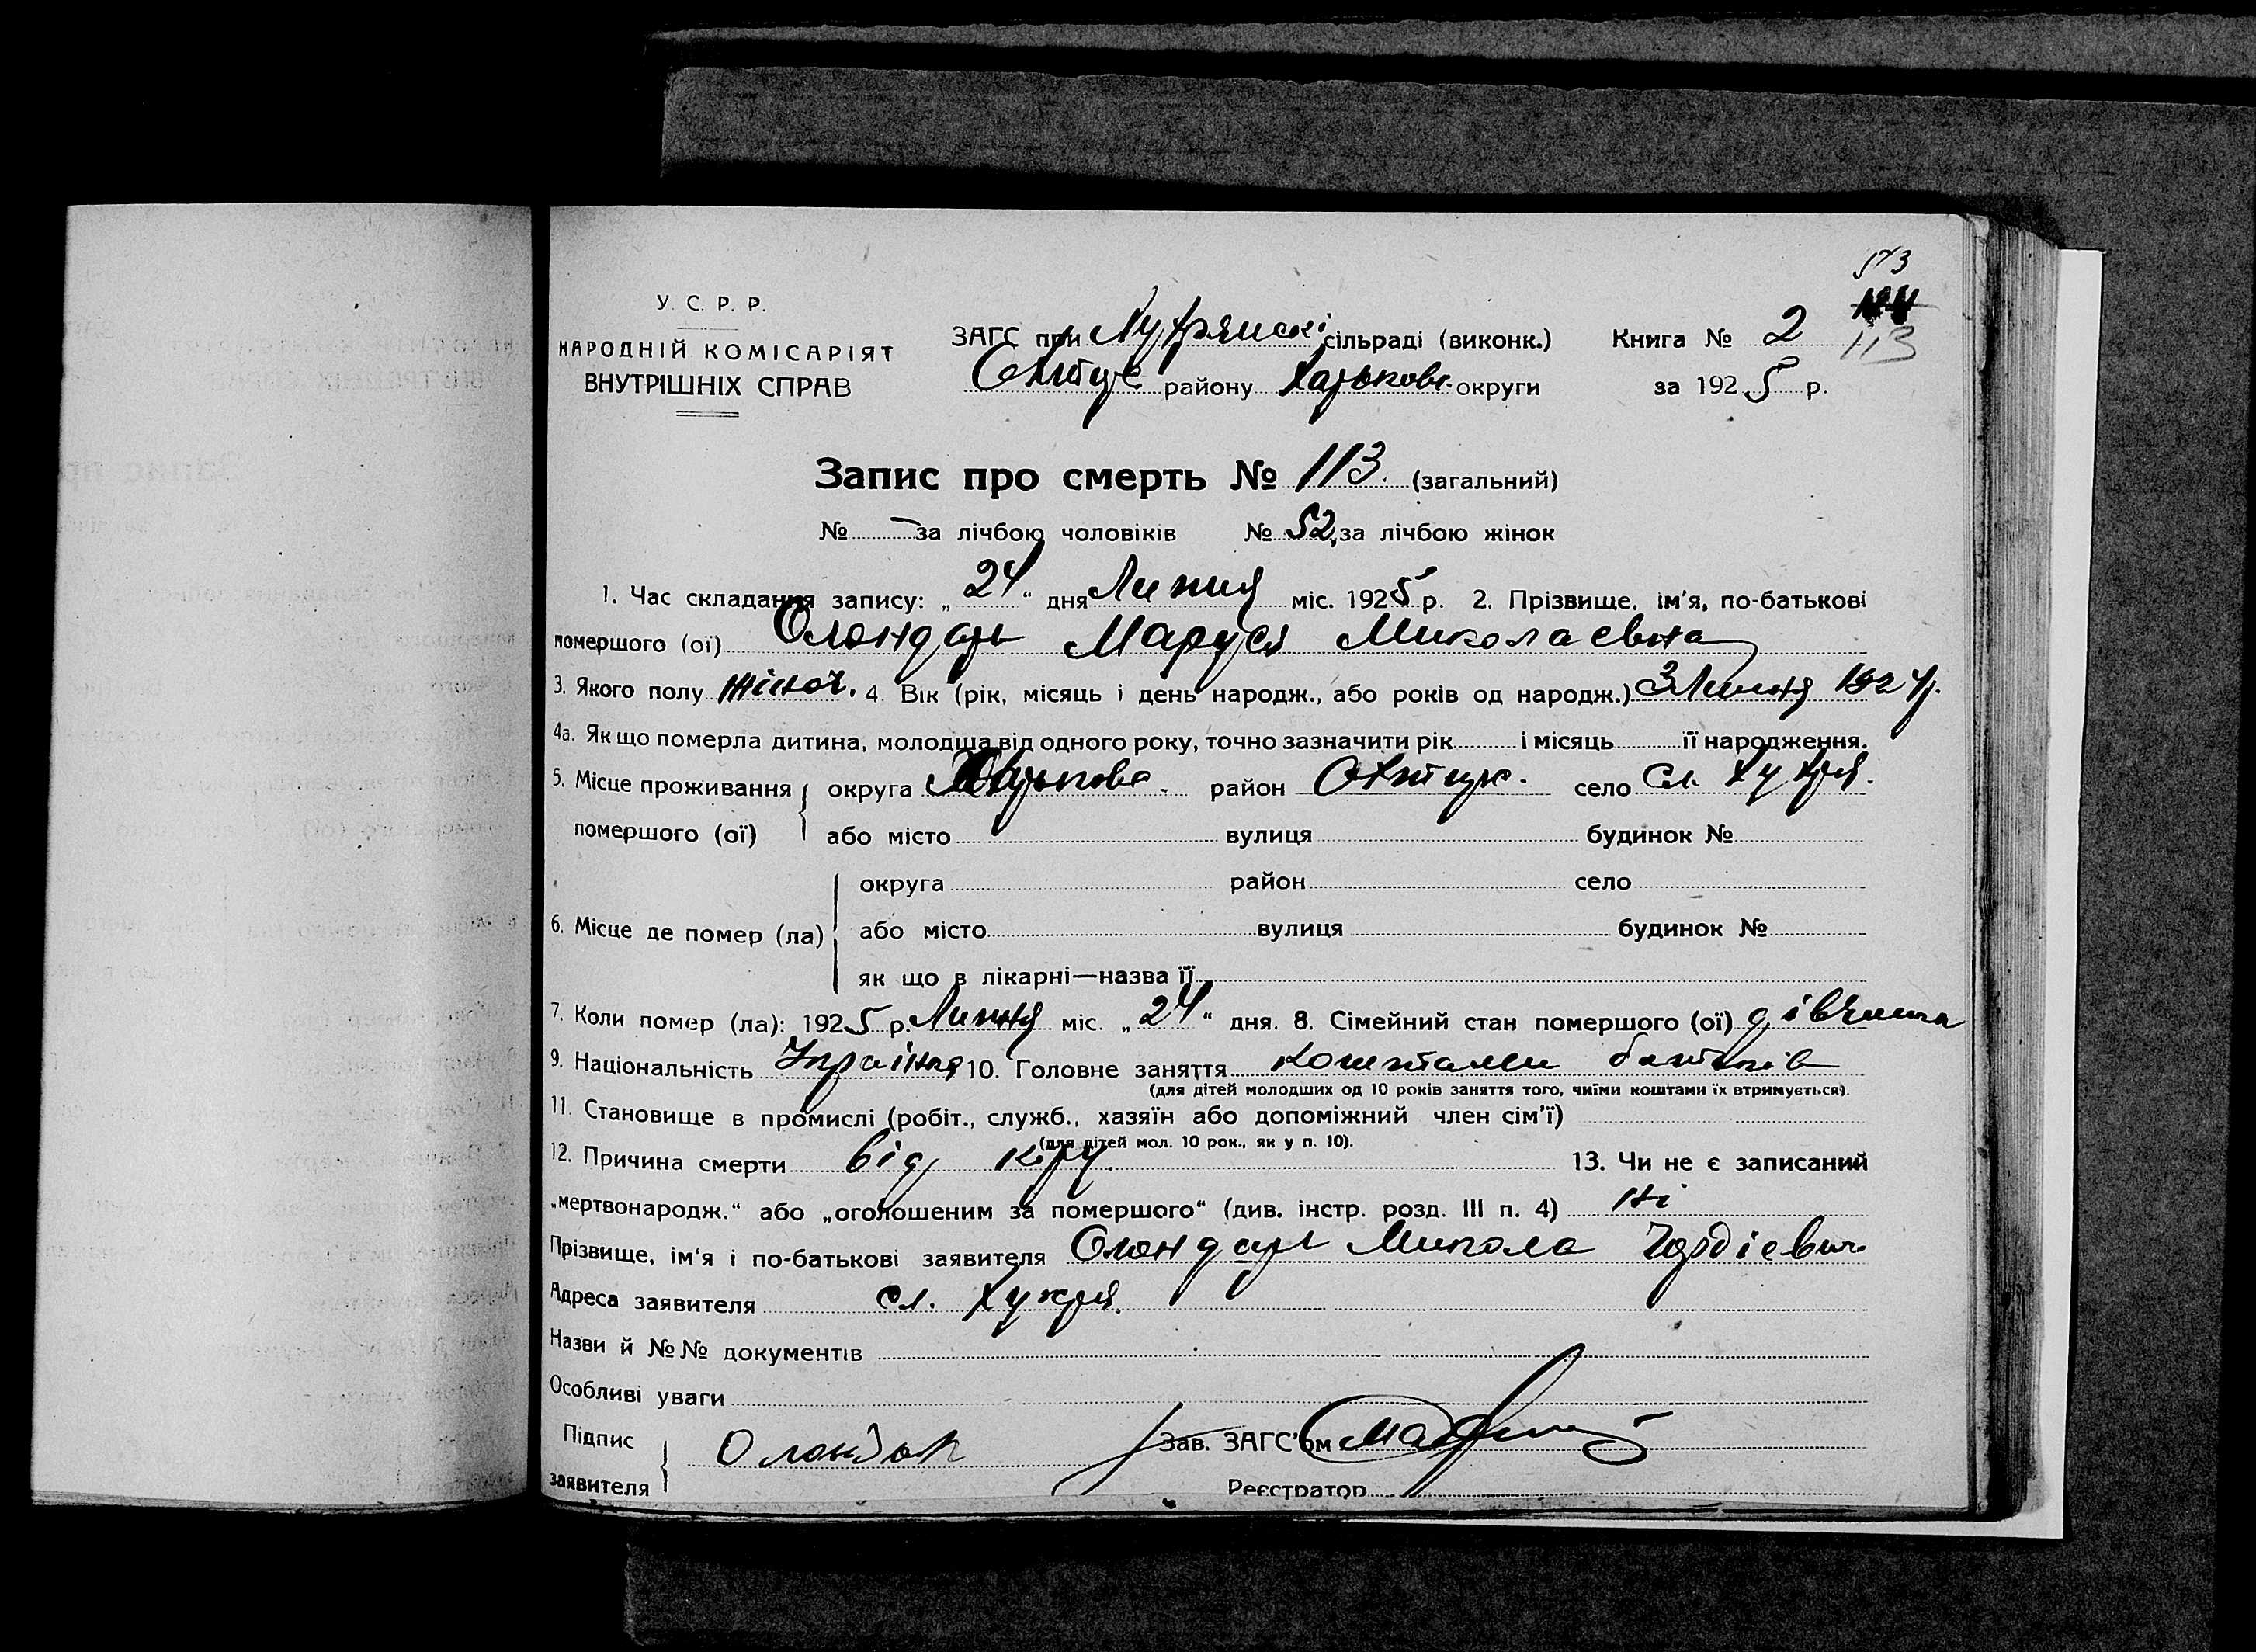 573
У. С. Р. Р.
НАРОДНІЙ КОМІСАРІЯТ
ВНУТРІШНІХ СПРАВ
ЗАГС при сільраді (виконк.)
Охтирк району Харькове. округи
Книга № 2
113
за 1925 р.
Запис про смерть № 113. (загальний)
№ — за лічбою чоловіків № 52, за лічбою жінок
1. Час складання запису: „24“ дня Липня міс. 1925 р. 2. Прізвище, ім'я, по-батькові
помершого (ої) Олондарь Маруся Миколаевна
3. Якого полу жіноч. 4. Вік (рік, місяць і день народж., або років од народж.) 3 Липня 1924 р.
4а. Як що померла дитина, молодща від одного року, точно зазначити рік і місяць її народження.
5. Місце проживання округа Харькове. район Охтирк. село сл. Хухря.
помершого (ої) або місто вулиця будинок №
округа район село
6. Місце де помер (ла) або місто вулиця будинок №
як що в лікарні—назва її
7. Коли помер (ла): 1925 р. Липня міс. „24“ дня. 8. Сімейний стан помершого (ої) дівчина
9. Національність Україн 10. Головне заняття коштами батьків
(для дітей молодших од 10 років заняття того, чиїми коштами їх втримується).
11. Становище в промислі (робіт., служб., хазяїн або допоміжний член сім'ї)
(для дітей мол. 10 рок., як у п. 10).
12. Причина смерти від кіру. 13. Чи не є записаний
„мертвонародж.“ або „оголошеним за помершого“ (див. інстр. розд. III п. 4) Ні
Прізвище, ім'я і по-батькові заявителя Олондарь Микола Гордіевич
Адреса заявителя сл. Хухря.
Назви й №№ документів
Особливі уваги
Підпис
заявителя Олондар Зав. ЗАГС'ом
Реєстратор